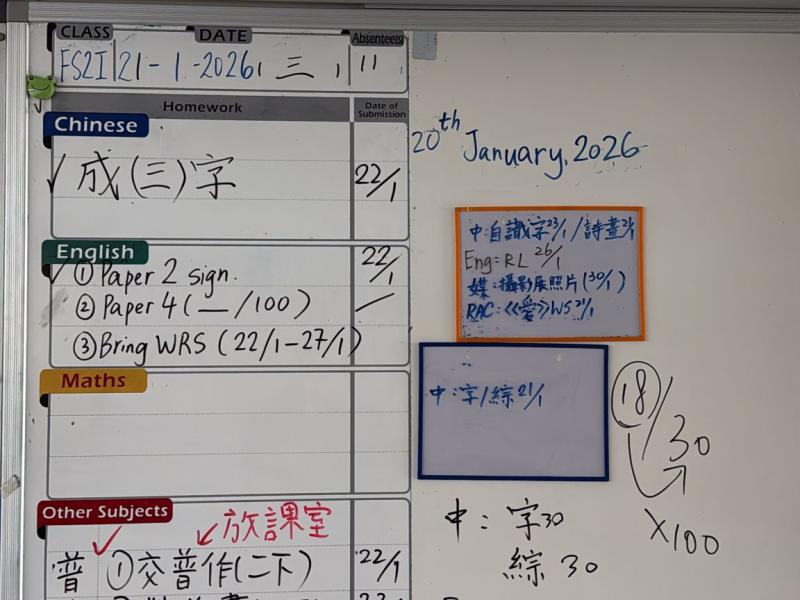 CLASS DATE Absentee(s)
FS2I 21-1-2026, 三, 11
Homework Date of Submission
Chinese
✓ 成(三)字 22/1
English
✓ ① Paper 2 sign. 22/1
② Paper 4 ( __ /100)
③ Bring WRS (22/1-27/1)
Maths
Other Subjects
放課室
普 ① 交普作(二下) 22/1
20th January, 2026
中:自識字23/1 /詩畫21/1
Eng: RL 26/1
媒:攝影展照片(30/1)
RAC:《愛》WS 21/1
中:字/綜21/1
18/30
×100
中: 字30
綜 30